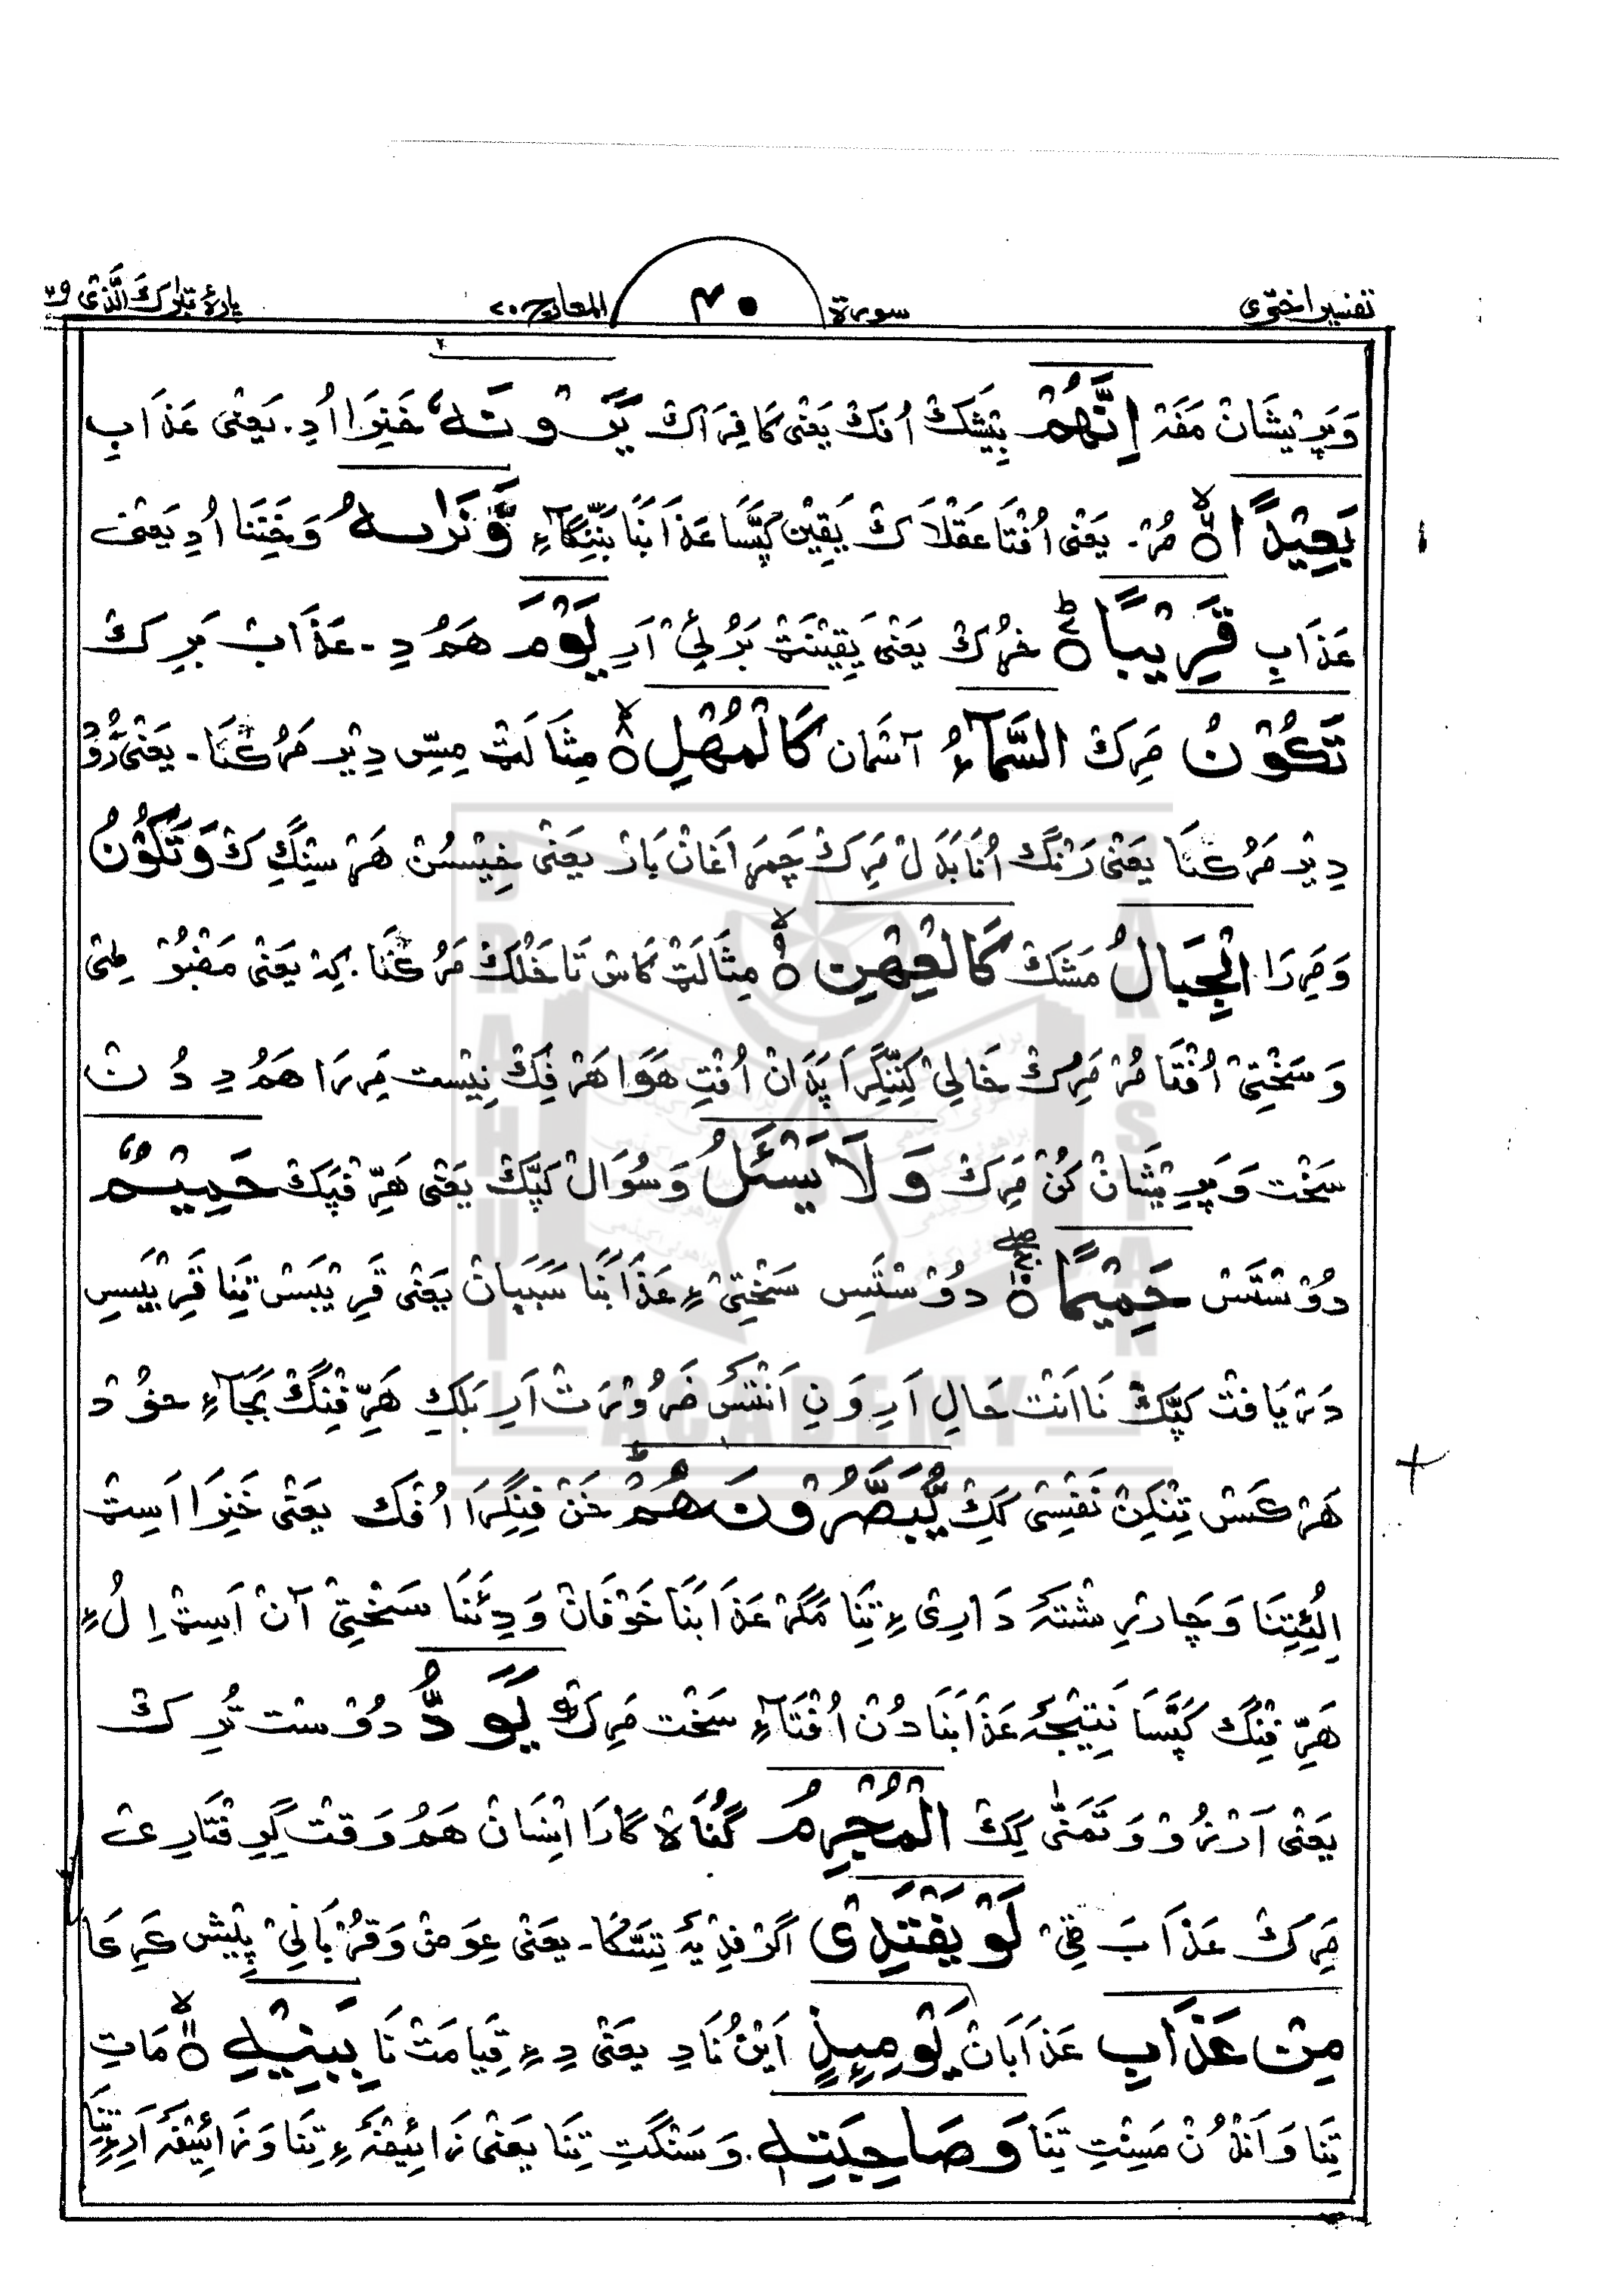 تفسیر اختری سورة ۴۰ المعارج ۷۰ پارۂ تبارک الذی ۲۹
وَپَرِیْشَانْ مَفَہْ اِنَّهُمْ بِیْشَکْ اُفکْ یَعْنِیْ کَافِرَاکْ یَرَوْنَهٗ خَنِرَا اُدِ۔ یَعْنِیْ عَذَابِ
بَعِیْدًا ۙ مُرْ۔ یَعْنِیْ اُفْتَا عَقْلَاکْ یَقِیْنْ کَپَّسَا عَذَابَنَا بَنِّنْگَآءِ وَّنَرٰىهُ وَخَنِنَا اُدِ یَعْنِیْ
عَذَابِ قَرِیْبًا ؕ خُرُکْ یَعْنِیْ یَقِیْنَتْ بَرُلیْ اَرِ یَوْمَ هَمُ دِ۔ عَذَابْ بَرِکْ
تَكُوْنُ مَرِکْ السَّمَآءُ آسْمَان كَالْمُهْلِ ۙ مِثَالَتْ مِسِّ دِیْر مَرُکُنَا۔ یَعْنِیْ
دِیْر مَرُکُنَا یَعْنِیْ رَنْگ اُنَا بَدَلْ مَرِکْ چَمَرَاغَانْ بَارْ یَعْنِیْ خِیْسُنْ هَرْ سِنْگِکْ وَتَكُوْنُ
وَمَرِرَا الْجِبَالُ مَشَکْ كَالْعِهْنِ ۙ مِثَالَتْ کَاسْ تَا خَلْکْ مَرُکُنَا۔ کِہْ یَعْنِیْ مَضْبُوْطِیْ
وَسَخْتِیْ اُفْتَا مُرْ مَرِکْ خَالِیْ کِنِّنْگِرَا پَدَانْ اُفْتِ هَوَا هَرْفِکْ نِیْسْت مَرِرَا هَمُ دِ دُنْ
سَخْت وَپَرِیْشَانْ کُنْ مَرِکْ وَلَا یَسْـَٔلُ وَسُوَالْ کَپَّکْ یَعْنِیْ هَرِّفْپَکْ حَمِیْمٌ
دُوْسْتَسْ حَمِیْمًا ۚۖ دُوْسْتَسِ سَخْتِیْءِ عَذَابَنَا سَبَبَانْ یَعْنِیْ قَرِیْبَسْ تِنَا قَرِیْبَسِ
دَرْیَافتْ کَپَّکْ نَا اَنْتْ حَالِ اَرِ وَنِ اَنْتَسْ ضَرُوْرَتْ اَرِ بَلْکِ هَرِّفِنْگْ بَجَآءِ خُوْد
هَرْکَسْ تِنْکِنْ نَفْسِیْ کِکِ یُّبَصَّرُوْنَهُمْ ؕ خَنْ فِنْگِرَا اُفْکْ یَعْنِیْ خَنِرَا اَسِٹْ
اِلُیِٔتِنَا وَچَارِرِ شْتَہْ دَارِیْءِ تِنَا مَگَرْ عَذَابَنَا خَوْفَانْ وَدِئَنَا سَخْتِیْ آنْ اَسِٹْ اِلُءِ
هَرِّفِنْگْ کَپَّسَا نَتِیْجَہْ عَذَابَنَا دُنْ اُفْتَآءِ سَخْت مَرِکْ یَوَدُّ دُوْسْت تُرِکْ
یَعْنِیْ آرْزُوْ وَتَمَنّٰی کِکْ الْمُجْرِمُ گُنَاہْ کَارَا اِنْسَانْ هَمُ وَقْتْ گِرِفْتَارِیْ
مَرِکْ عَذَابَ ٹِیْ لَوْ یَفْتَدِیْ اَگَرْ فِدْیَہْ تِسَّکَا۔ یَعْنِیْ عِوَضْ وَقُرْبَانِیْ پِیْش کَرِعَا
مِنْ عَذَابِ عَذَابَانْ یَوْمِىِٕذٍۭ اَیْنُ نَا دِ یَعْنِیْ دِءِ قِیَامَتْ نَا بِبَنِیْهِ ۙ مَاتِ
تِنَا وَاَنْدُنْ مَسِنْتِ تِنَا وَصَاحِبَتِهٖ۔ وَسَنْگَتِ تِنَا یَعْنِیْ زَائِیْفَہْءِ تِنَا وَزَائِیْفَہْ اَرِءِ تِنَا
BRAHUI
ACADEMY
PAKISTAN